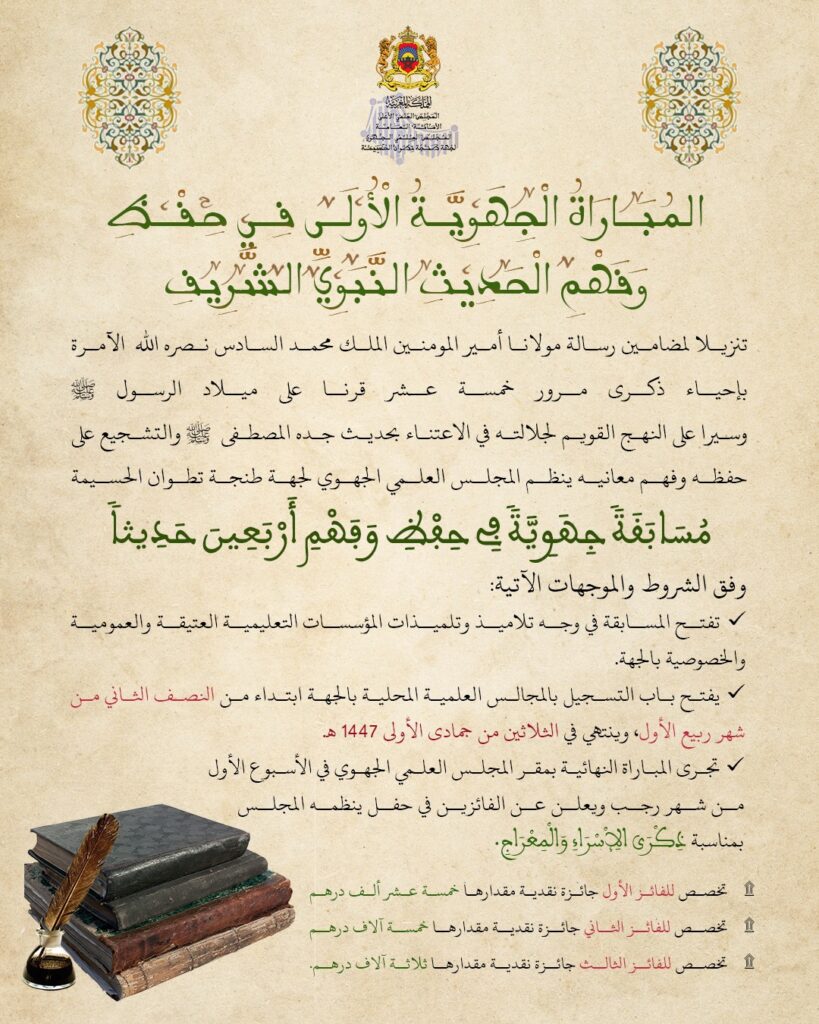 المملكة المغربية
المجلس العلمي الأعلى
الأمانة العامة
المجلس العلمي الجهوي
لجهة طنجة تطوان الحسيمة
المُبَارَاةُ الْجِهَوِيَّةُ الْأُولَى فِي حِفْظِ
وَفَهْمِ الْحَدِيثِ النَّبَوِيِّ الشَّرِيفِ
تنزيلا لمضامين رسالة مولانا أمير المومنين الملك محمد السادس نصره الله الآمرة
بإحياء ذكرى مرور خمسة عشر قرنا على ميلاد الرسول ﷺ
وسيرا على النهج القويم لجلالته في الاعتناء بحديث جده المصطفى ﷺ والتشجيع على
حفظه وفهم معانيه ينظم المجلس العلمي الجهوي لجهة طنجة تطوان الحسيمة
مُسَابَقَةً جِهَوِيَّةً فِي حِفْظِ وَفَهْمِ أَرْبَعِينَ حَدِيثاً
وفق الشروط والموجهات الآتية:
✓ تفتح المسابقة في وجه تلاميذ وتلميذات المؤسسات التعليمية العتيقة والعمومية
والخصوصية بالجهة.
✓ يفتح باب التسجيل بالمجالس العلمية المحلية بالجهة ابتداء من النصف الثاني من
شهر ربيع الأول، وينتهي في الثلاثين من جمادى الأولى 1447 هـ
✓ تجرى المباراة النهائية بمقر المجلس العلمي الجهوي في الأسبوع الأول
من شهر رجب ويعلن عن الفائزين في حفل ينظمه المجلس
بمناسبة ذِكْرَى الإِسْرَاءِ وَالْمِعْرَاجِ.
۩ تخصص للفائز الأول جائزة نقدية مقدارها خمسة عشر ألف درهم
۩ تخصص للفائز الثاني جائزة نقدية مقدارها خمسة آلاف درهم
۩ تخصص للفائز الثالث جائزة نقدية مقدارها ثلاثة آلاف درهم.